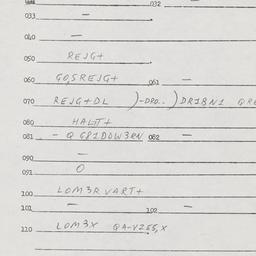 032 —
033 —
040 —
050 REJG+
060 GO,SREJG+ 061 —
070 REJG+DL )-DRO.. ) DR18N1 QRE
080 HALT+
081 - Q G81DOW3RN 082 —
090 —
091 O
100 LOM3RVART+
101 — 102 —
110 LOM3X QA-V255,X